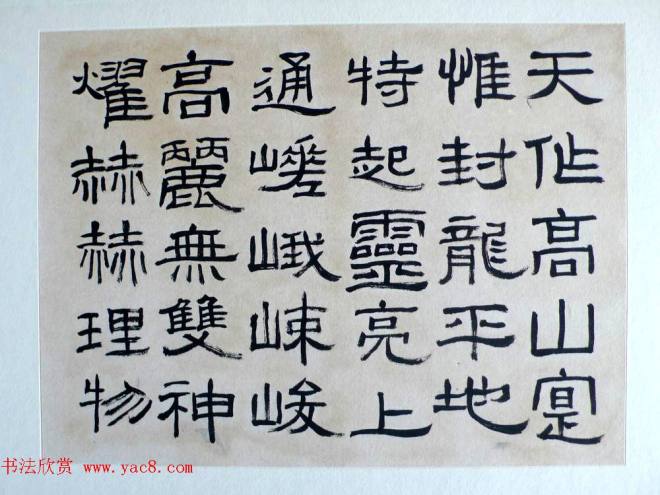 天作高山寔
惟封龍平地
特起靈亮上
通嵯峨崍峻
高麗無雙神
燿赫赫理物
书法欣赏 www.yac8.com